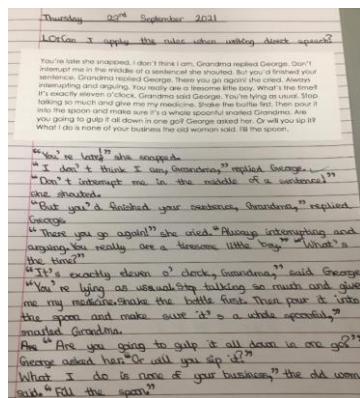 Thursday 23rd September 2021
LO: Can I apply the rules when writing direct speech?
You're late she snapped. I don't think I am, Grandma replied George. Don't
interrupt me in the middle of a sentence! she shouted. But you'd finished your
sentence, Grandma replied George. There you go again! she cried. Always
interrupting and arguing. You really are a tiresome little boy. What's the time?
It's exactly eleven o'clock, Grandma said George. You're lying as usual. Stop
talking so much and give me my medicine. Shake the bottle first. Then pour it
into the spoon and make sure it's a whole spoonful snarled Grandma. Are
you going to gulp it all down in one go? George asked her. Or will you sip it?
What I do is none of your business the old woman said. Fill the spoon.
"You're late!" she snapped.
"I don't think I am, Grandma," replied George.
"Don't interrupt me in the middle of a sentence!"
she shouted.
"But you'd finished your sentence, Grandma," replied
George
"There you go again!" she cried. "Always interrupting and
arguing. You really are a tiresome little boy." "What's
the time?"
"It's exactly eleven o'clock, Grandma," said George
"You're lying as usual. Stop talking so much and give
me my medicine. Shake the bottle first. Then pour it into
the spoon and make sure it's a whole spoonful,"
snarled Grandma.
"Are you going to gulp it all down in one go?"
George asked her. "Or will you sip it?"
What I do is none of your business," the old woman
said. "Fill the spoon."